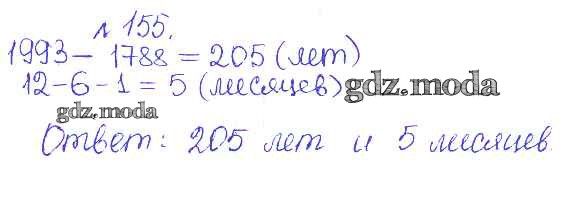 № 155.
1993 - 1788 = 205 (лет)
12-6-1 = 5 (месяцев) gdz.moda
gdz.moda
Ответ: 205 лет и 5 месяцев.